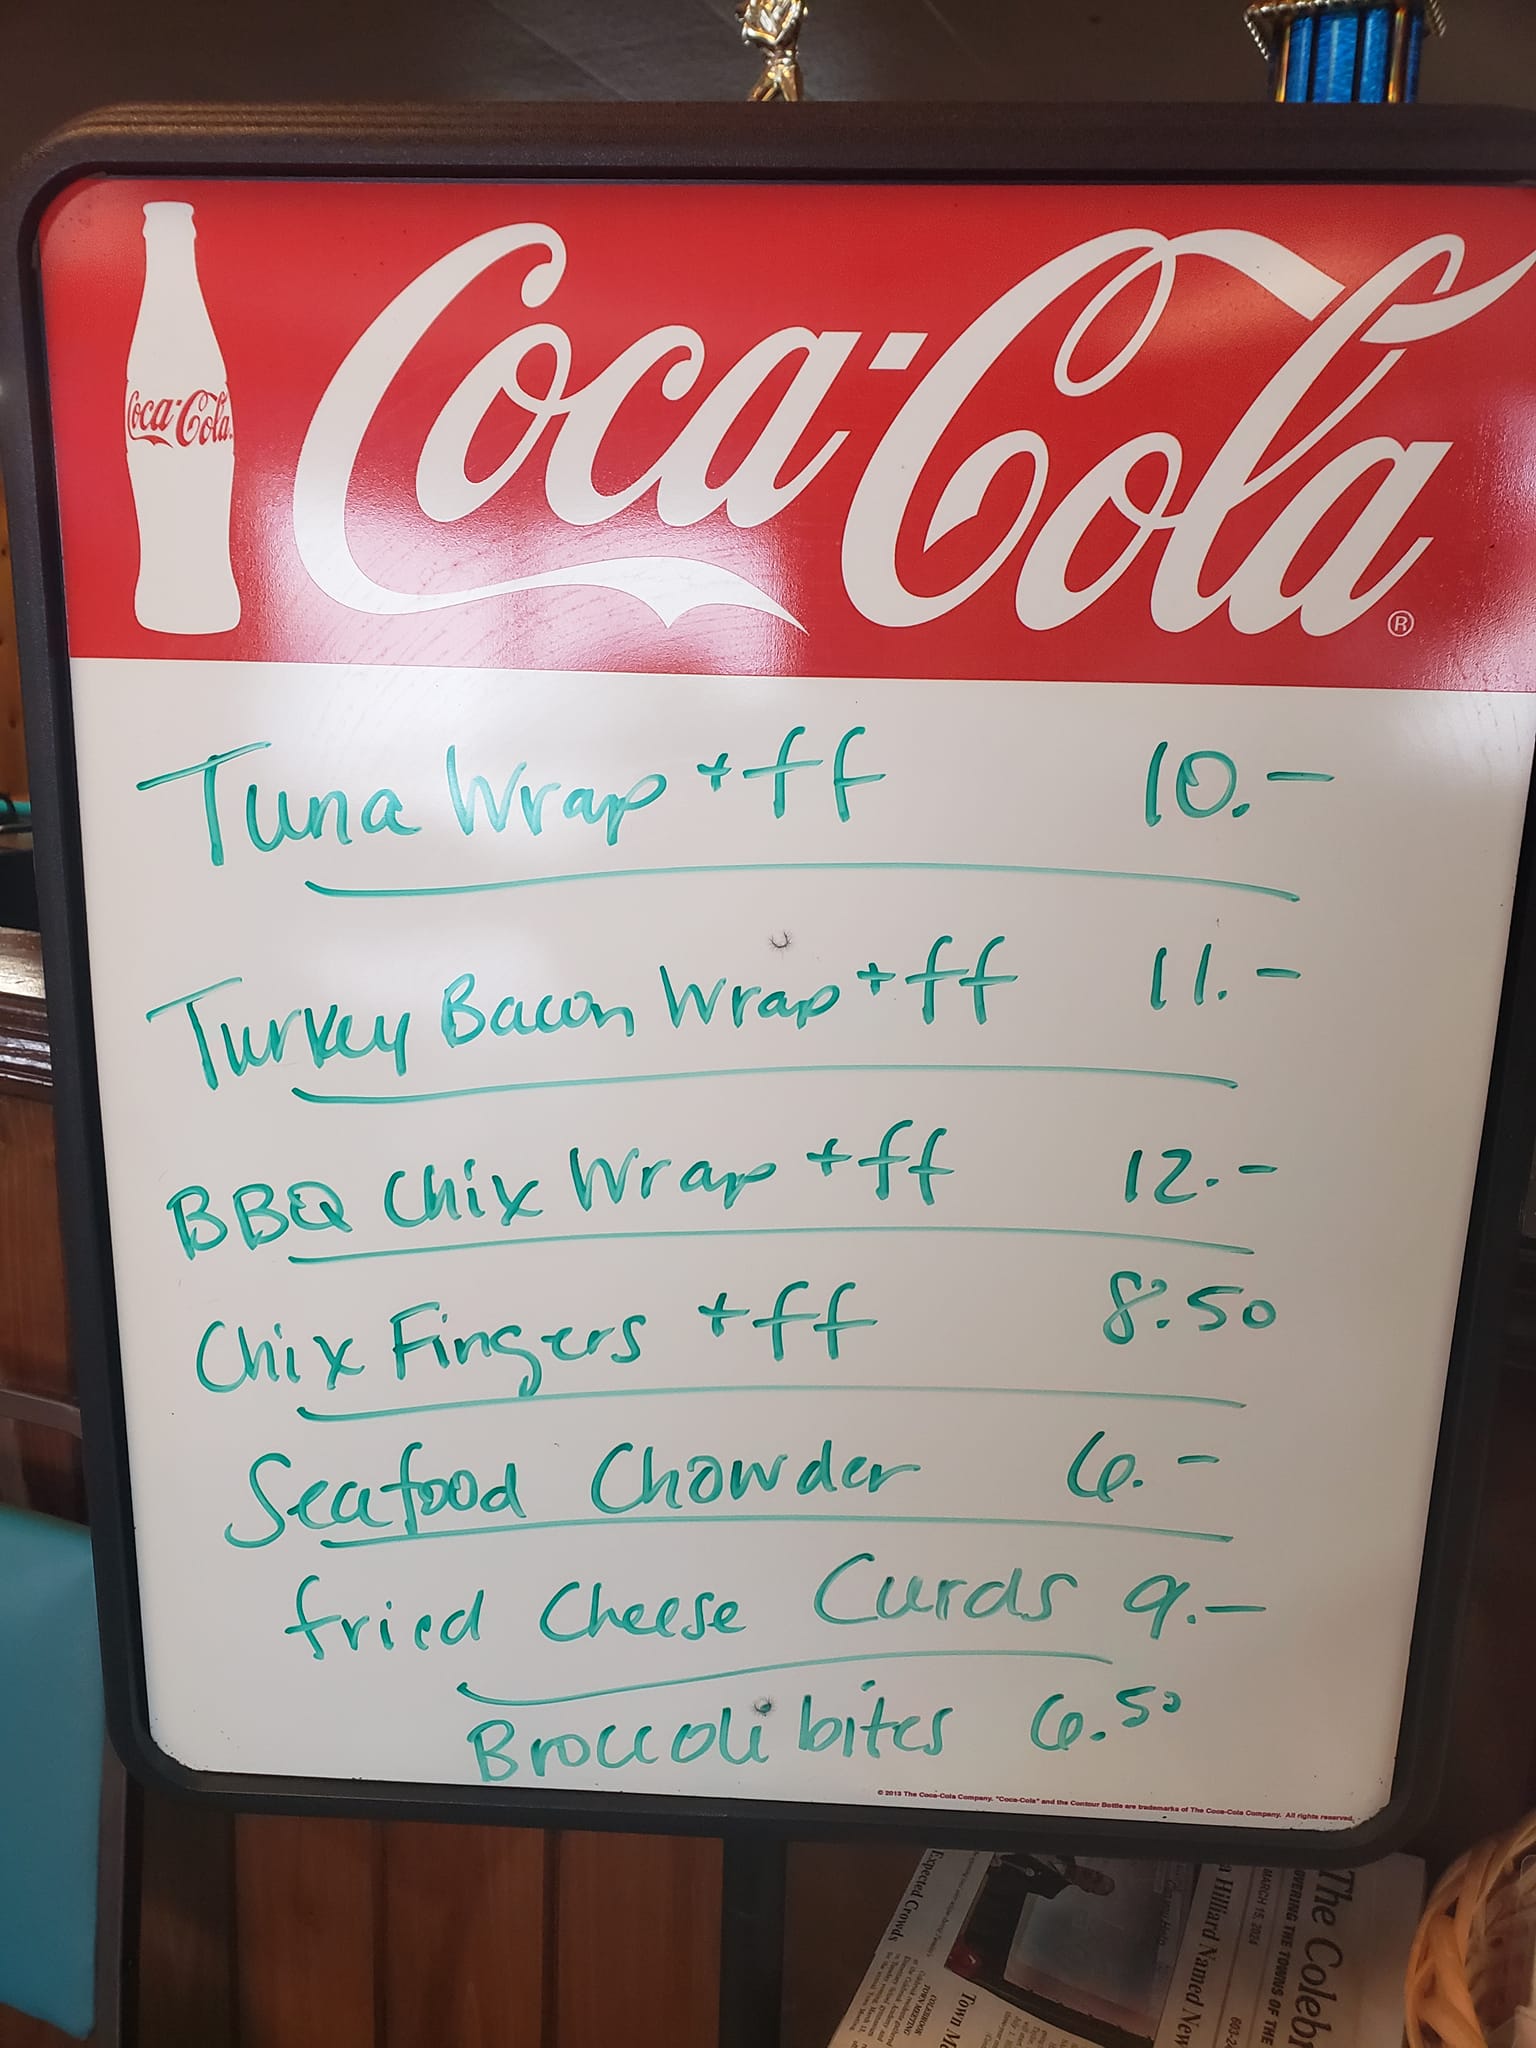 Coca-Cola
Coca-Cola ®
Tuna Wrap + ff 10.-
Turkey Bacon Wrap + ff 11.-
BBQ Chix Wrap + ff 12.-
Chix Fingers + ff 8.50
Seafood Chowder 6.-
fried Cheese Curds 9.-
Broccoli bites 6.50
© 2013 The Coca-Cola Company. "Coca-Cola" and the Contour Bottle are trademarks of The Coca-Cola Company. All rights reserved.
The Colebr
OVERING THE TOWNS OF THE
MARCH 15, 2024
603-2
Hilliard Named New
Expected Crowds
COLEBROOK
TOWN MEETING
Town M